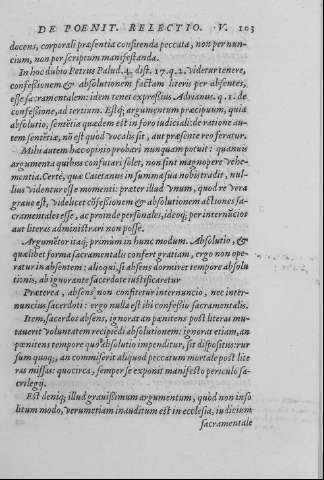 DE POENIT. RELECTIO. V. 103
docens, corporali præsentia confitenda peccata, non per nun-
cium, non per scriptum manifestanda.
In hoc dubio Petrus Palud. 4. dist. 17. q. 2. videtur tenere,
confessionem & absolutionem factam literis per absentes,
esse sacramentalem: idem tenet expressius Adrianus. q. 1. de
confessione, ad tertium. Estq; argumentum præcipuum, quia
absolutio, sentētia quædam est in foro iudiciali: de ratione au-
tem sentētiæ, nō est quòd vocalis sit, aut præsente reo feratur.
Mihi autem hæc opinio probari nunquam potuit: quanuis
argumenta quibus confutari solet, non sint magnopere vehe-
mentia. Certè, quæ Caietanus in summa sua nobis tradit, nul-
lius videntur esse momenti: præter illud vnum, quod re vera
graue est, videlicet cōfessionem & absolutionem actiones sa-
cramentales esse, ac proinde personales, ideoq; per internūcios
aut literas administrari non posse.
Argumētor itaq; primum in hunc modum. Absolutio, &
quælibet forma sacramentalis confert gratiam, ergo non ope-
ratur in absentem: alioqui, si absens dormiret tempore absolu
tionis, ab ignorante sacerdote iustificaretur
Præterea, absens non confitetur internuncio, nec inter-
nuncius sacerdoti: ergo nulla est ibi confessio sacramentalis.
Item, sacerdos absens, ignorat an pœnitens post literas mu-
tauerit voluntatem recipiēdi absolutionem: ignorat etiam, an
pœnitens tempore quo absolutio impenditur, sit dispositus: rur
sum quoq;, an commiserit aliquod peccatum mortale post lite
ras missas: quocirca, semper se exponit manifesto periculo sa-
crilegij.
Est deniq; illud grauissimum argumentum, quòd non inso
litum modo, verumetiam inauditum est in ecclesia, iudicium
sacramentale